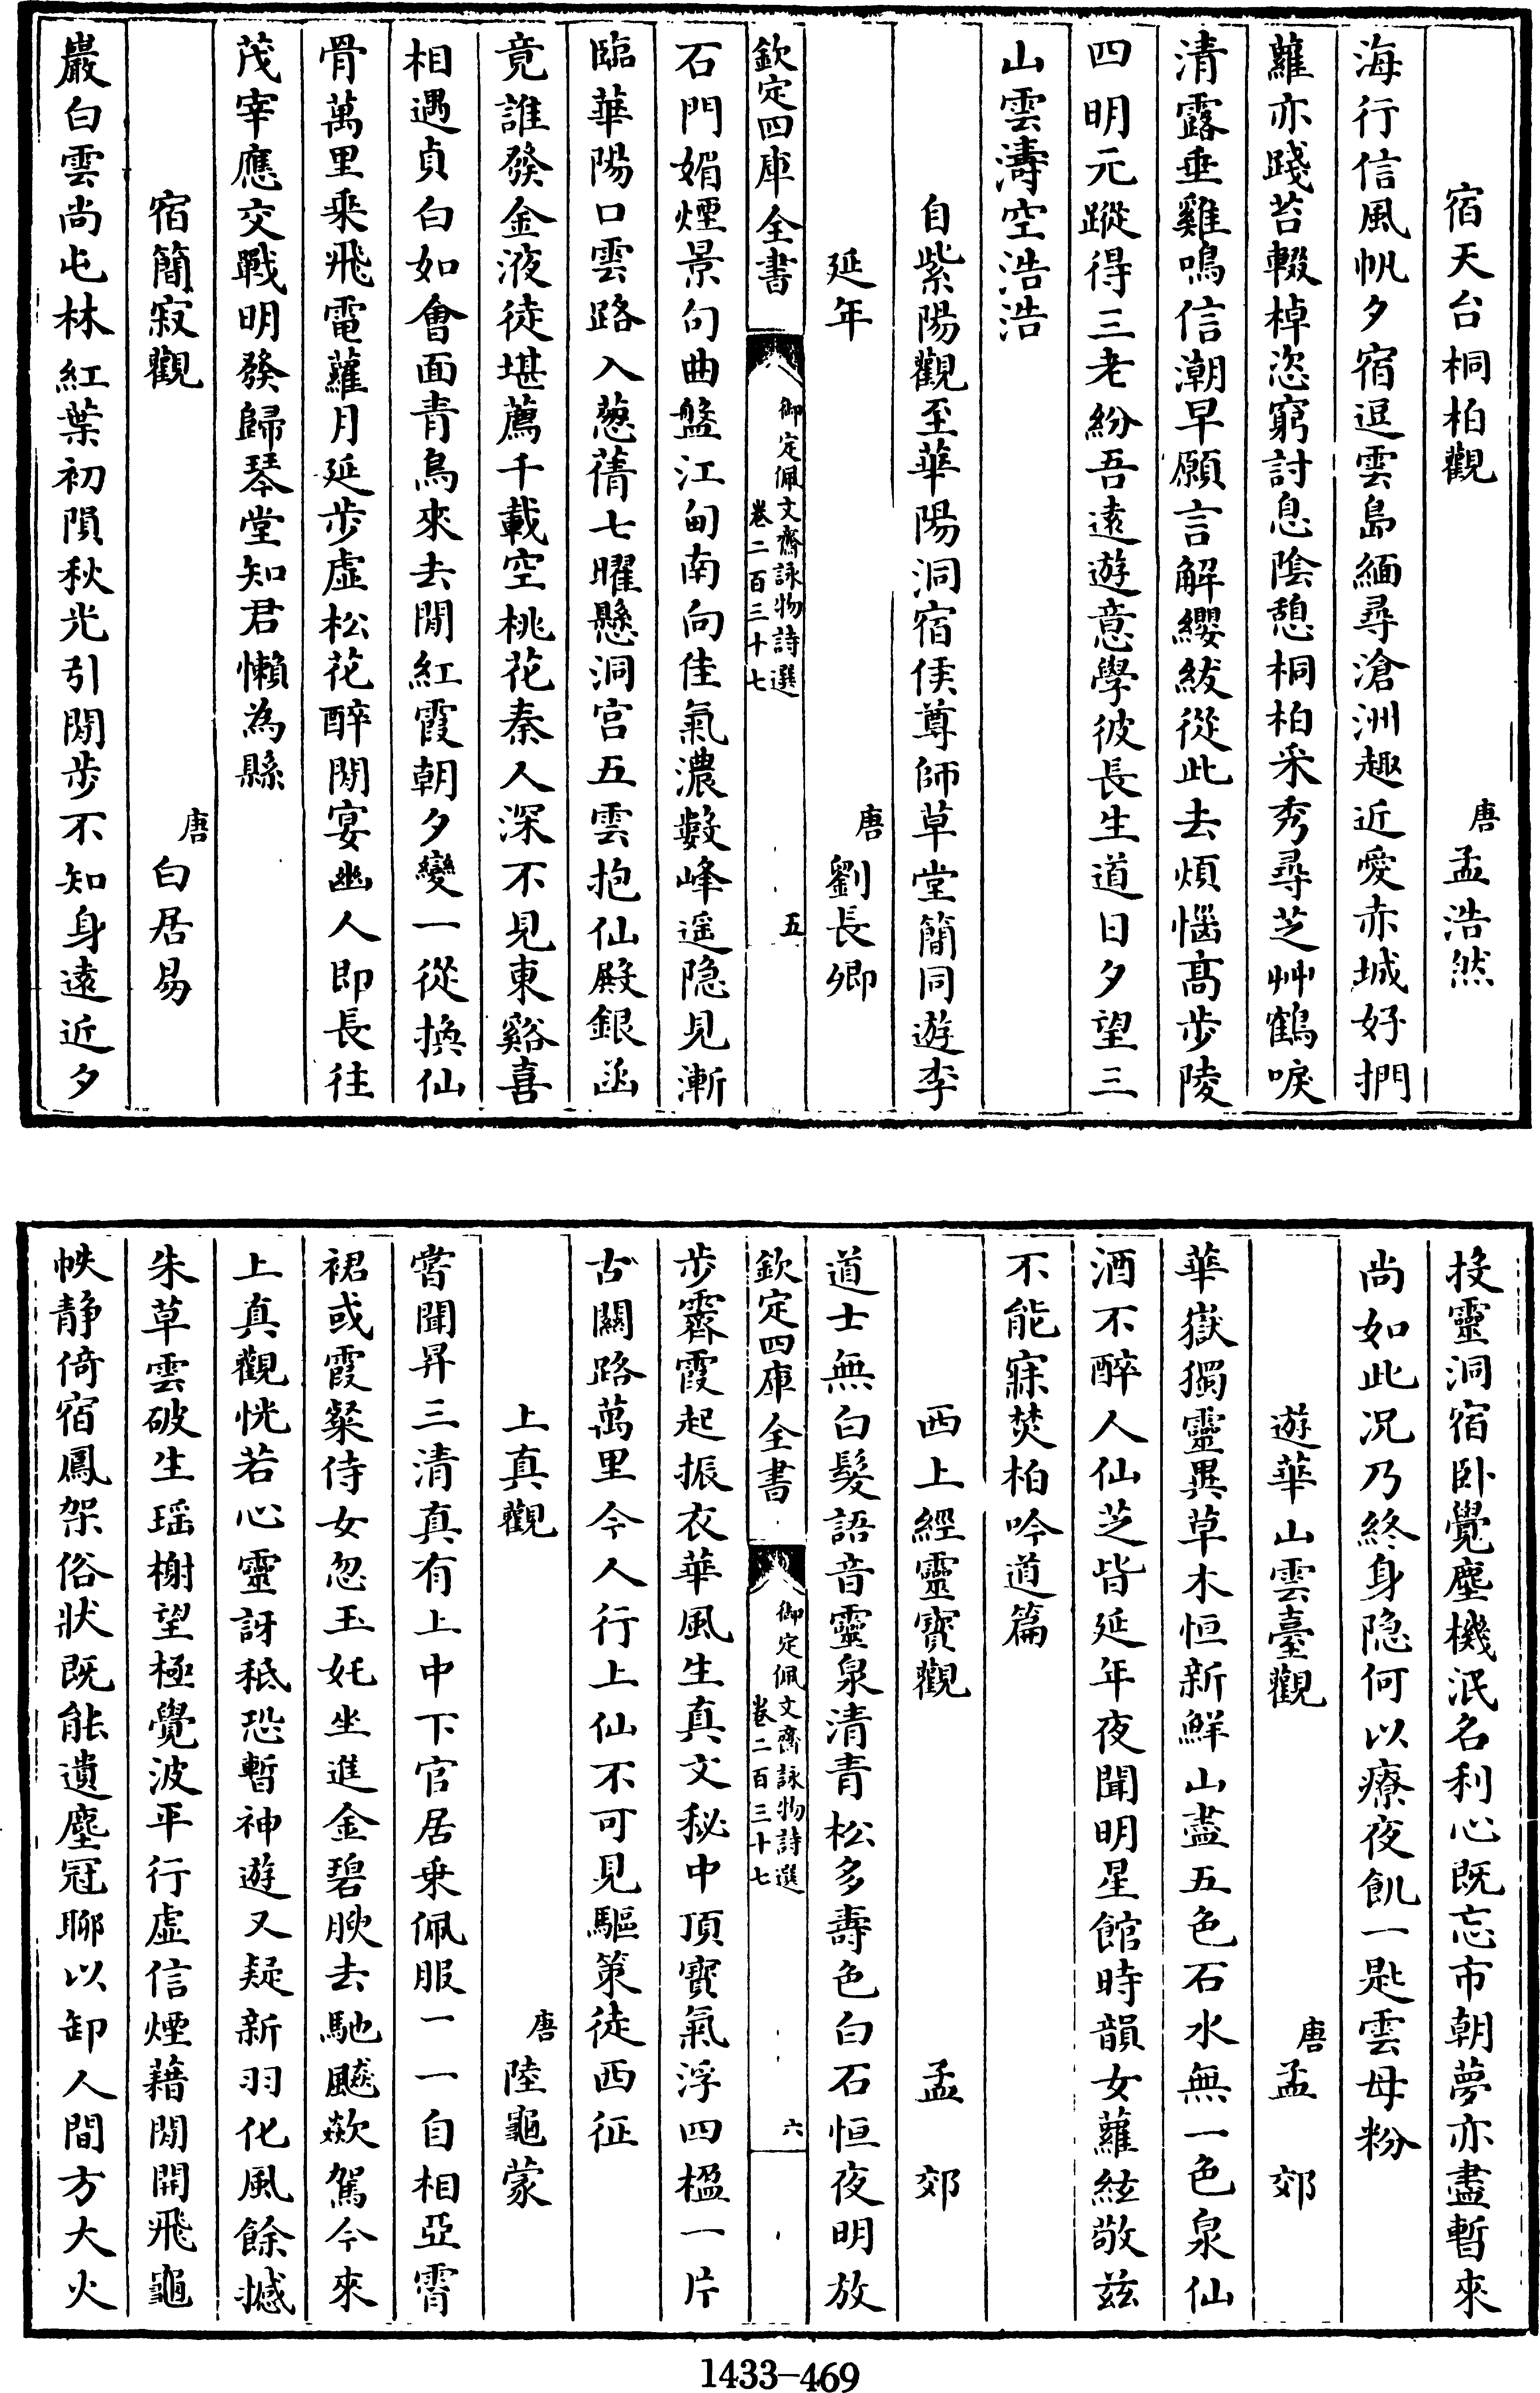 宿天台桐柏觀　唐孟浩然
海行信風帆夕宿逗雲島緬尋滄洲趣近愛赤城好捫
蘿亦踐苔輟棹恣窮討息陰憩桐柏采秀尋芝艸鶴唳
清露垂雞鳴信潮早願言解纓紱從此去煩惱髙步陵
四明元蹤得三老紛吾逺遊意學彼長生道日夕望三
山雲濤空浩浩
自紫陽觀至華陽洞宿侯尊師草堂簡同遊李
延年　唐劉長卿
欽定四庫全書　御定佩文齋詠物詩選卷二百三十七　五
石門媚煙景句曲盤江甸南向佳氣濃數峰遥隐見漸
臨華陽口雲路入葱蒨七曜懸洞宫五雲抱仙殿銀函
竟誰發金液徒堪薦千載空桃花秦人深不見東谿喜
相遇貞白如會面青鳥來去閒紅霞朝夕變一從換仙
骨萬里乘飛電蘿月延步虛松花醉閒宴幽人即長往
茂宰應交戰明發歸琴堂知君懶為縣
宿簡寂觀　唐白居易
巖白雲尚屯林紅葉初隕秋光引閒步不知身遠近夕
投靈洞宿卧覺塵機泯名利心既忘市朝夢亦盡暫來
尚如此况乃終身隐何以療夜飢一匙雲母粉
遊華山雲臺觀　唐孟郊
華嶽獨靈異草木恒新鮮山盡五色石水無一色泉仙
酒不醉人仙芝皆延年夜聞明星館時韻女蘿絃敬兹
不能寐焚柏吟道篇
西上經靈寳觀　孟郊
道士無白髮語音靈泉清青松多壽色白石恒夜明放
欽定四庫全書　御定佩文齋詠物詩選卷二百三十七　六
步霽霞起振衣華風生真文秘中頂寳氣浮四楹一片
古關路萬里今人行上仙不可見驅策徒西征
上真觀　唐陸龜蒙
嘗聞昇三清真有上中下官居乗佩服一一自相亞霄
裙或霞粲侍女忽玉奼坐進金碧腴去馳飈欻駕今來
上真觀恍若心靈訝秪恐暫神遊又疑新羽化風餘撼
朱草雲破生瑶榭望極覺波平行虛信煙藉閒開飛龜
帙静倚宿鳳架俗狀既能遺塵冠聊以卸人間方大火
1433-469